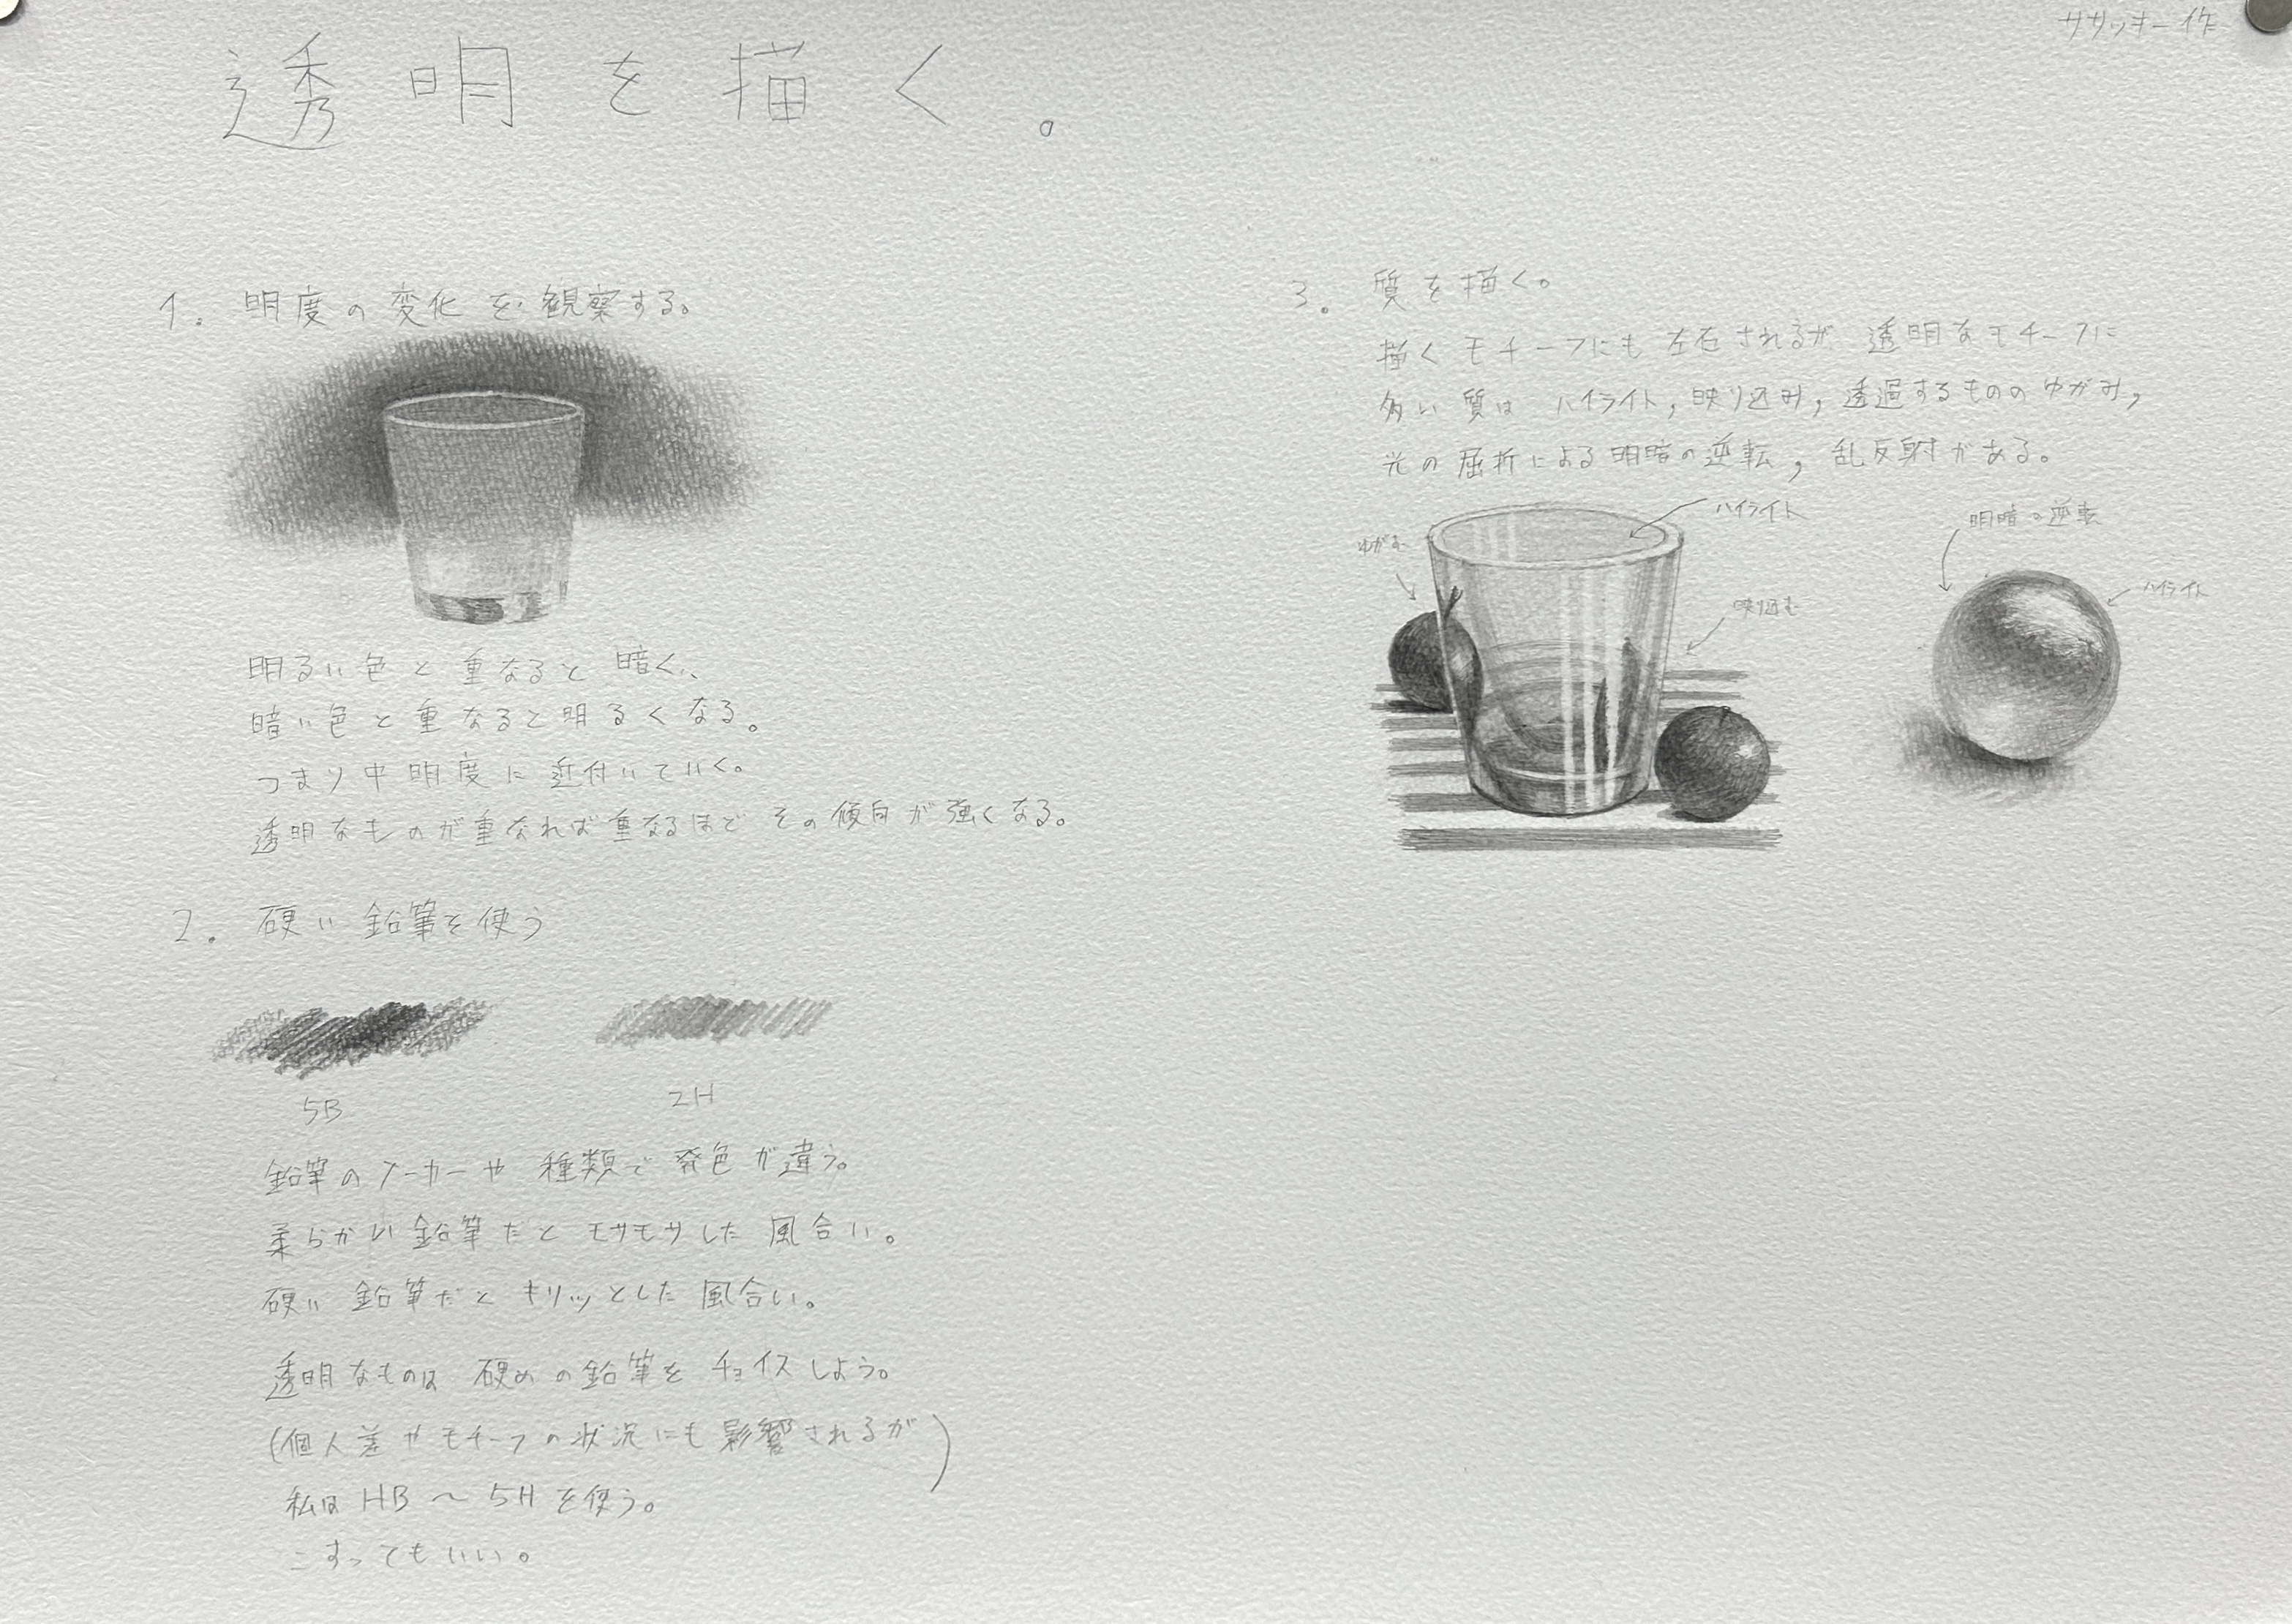 ササッキー作
透明を描く。
1. 明度の変化を観察する。
明るい色と重なると暗く、
暗い色と重なると明るくなる。
つまり中明度に近付いていく。
透明なものが重なれば重なるほどその傾向が強くなる。
2. 硬い鉛筆を使う
5B
2H
鉛筆のメーカーや種類で発色が違う。
柔らかい鉛筆だとモサモサした風合い。
硬い鉛筆だとキリッとした風合い。
透明なものは硬めの鉛筆をチョイスしよう。
(個人差やモチーフの状況にも影響されるが)
私はHB〜5Hを使う。
こすってもいい。
3. 質を描く。
描くモチーフにも左右されるが透明なモチーフに
多い質はハイライト,映り込み,透過するもののゆがみ,
光の屈折による明暗の逆転,乱反射がある。
ハイライト
ゆがむ
映り込む
明暗の逆転
ハイライト